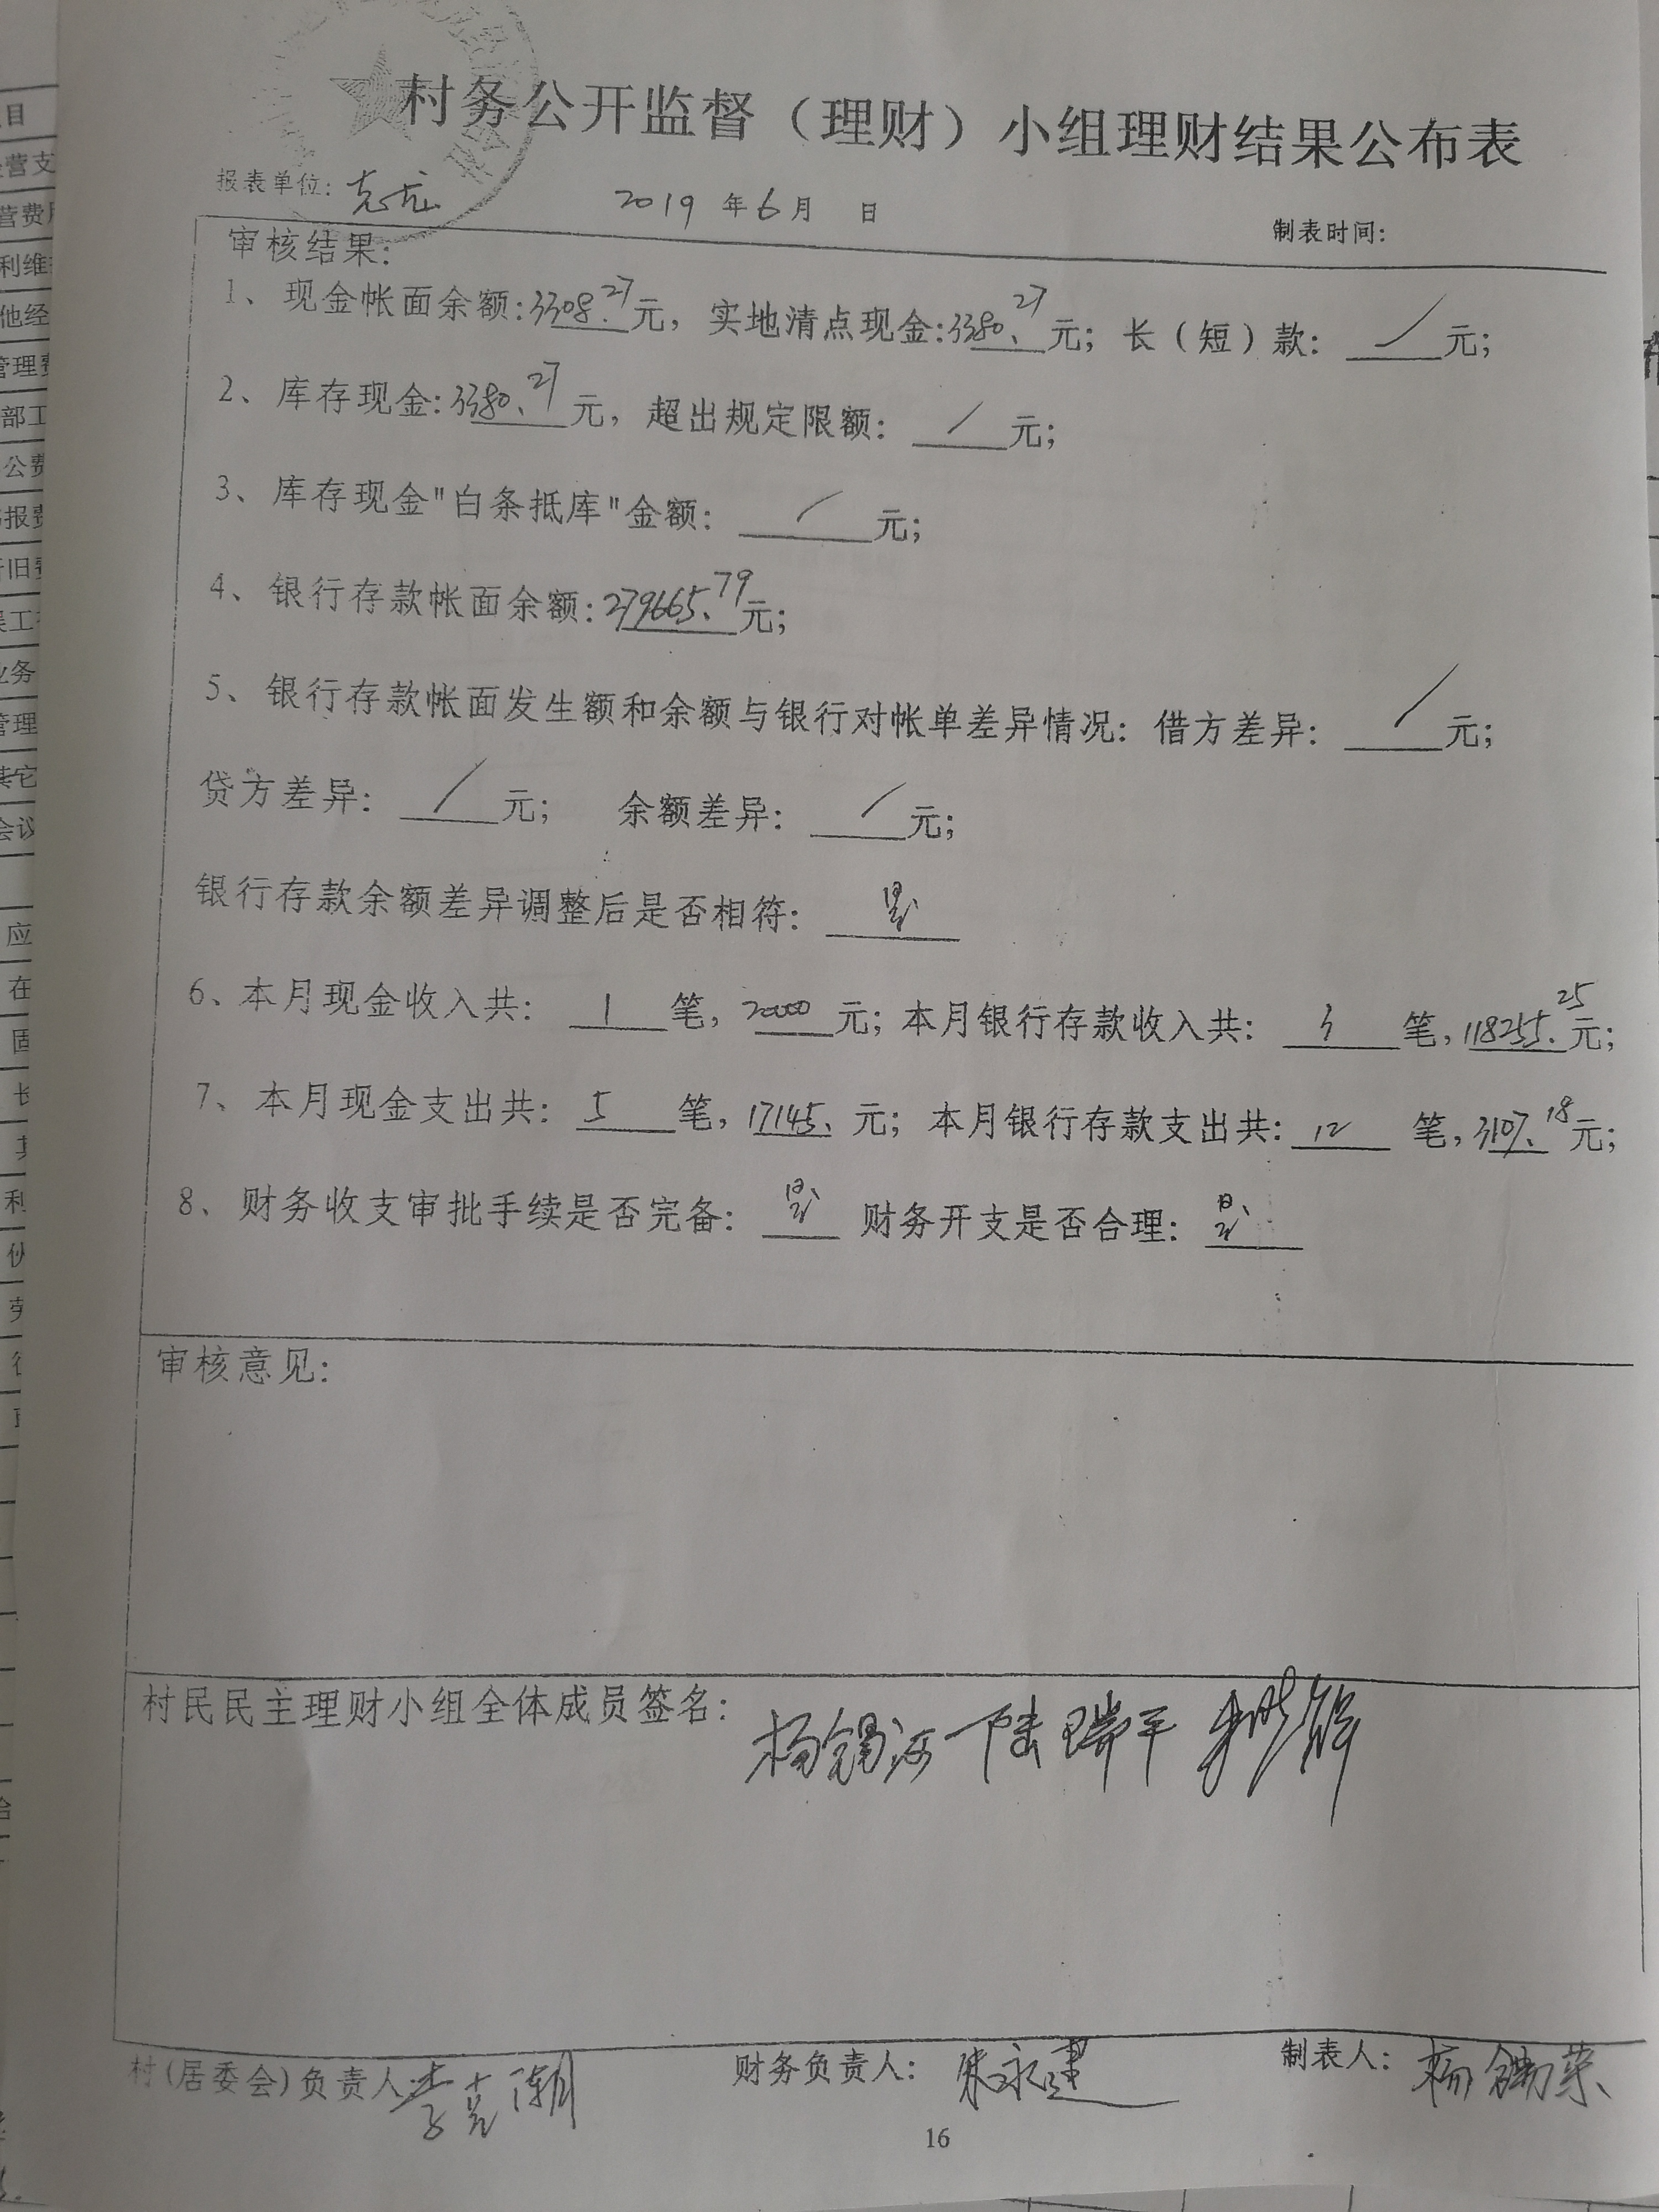 村务公开监督（理财）小组理财结果公布表
报表单位: 克龙 2019 年 6 月 日 制表时间:
审核结果:
1、现金帐面余额:3308.27元，实地清点现金:3380.27元；长（短）款: / 元；
2、库存现金:3380.27元，超出规定限额: / 元；
3、库存现金"白条抵库"金额: / 元；
4、银行存款帐面余额:279665.79元；
5、银行存款帐面发生额和余额与银行对帐单差异情况: 借方差异: / 元；
贷方差异: / 元； 余额差异: / 元；
银行存款余额差异调整后是否相符: 是
6、本月现金收入共: 1 笔, 20000 元；本月银行存款收入共: 3 笔, 118255.25元；
7、本月现金支出共: 5 笔, 17145. 元；本月银行存款支出共: 12 笔, 元；
8、财务收支审批手续是否完备: 是 财务开支是否合理: 是
审核意见:
村民民主理财小组全体成员签名: 陆瑞平
村(居委会)负责人: 李克潮 财务负责人: 朱永建 制表人: 杨锡荣
16
目
营支
营费用
利维
他经
管理费
部工
公费
报费
旧费
误工
业务
管理
其它
会议
应
在
固
长
其
利